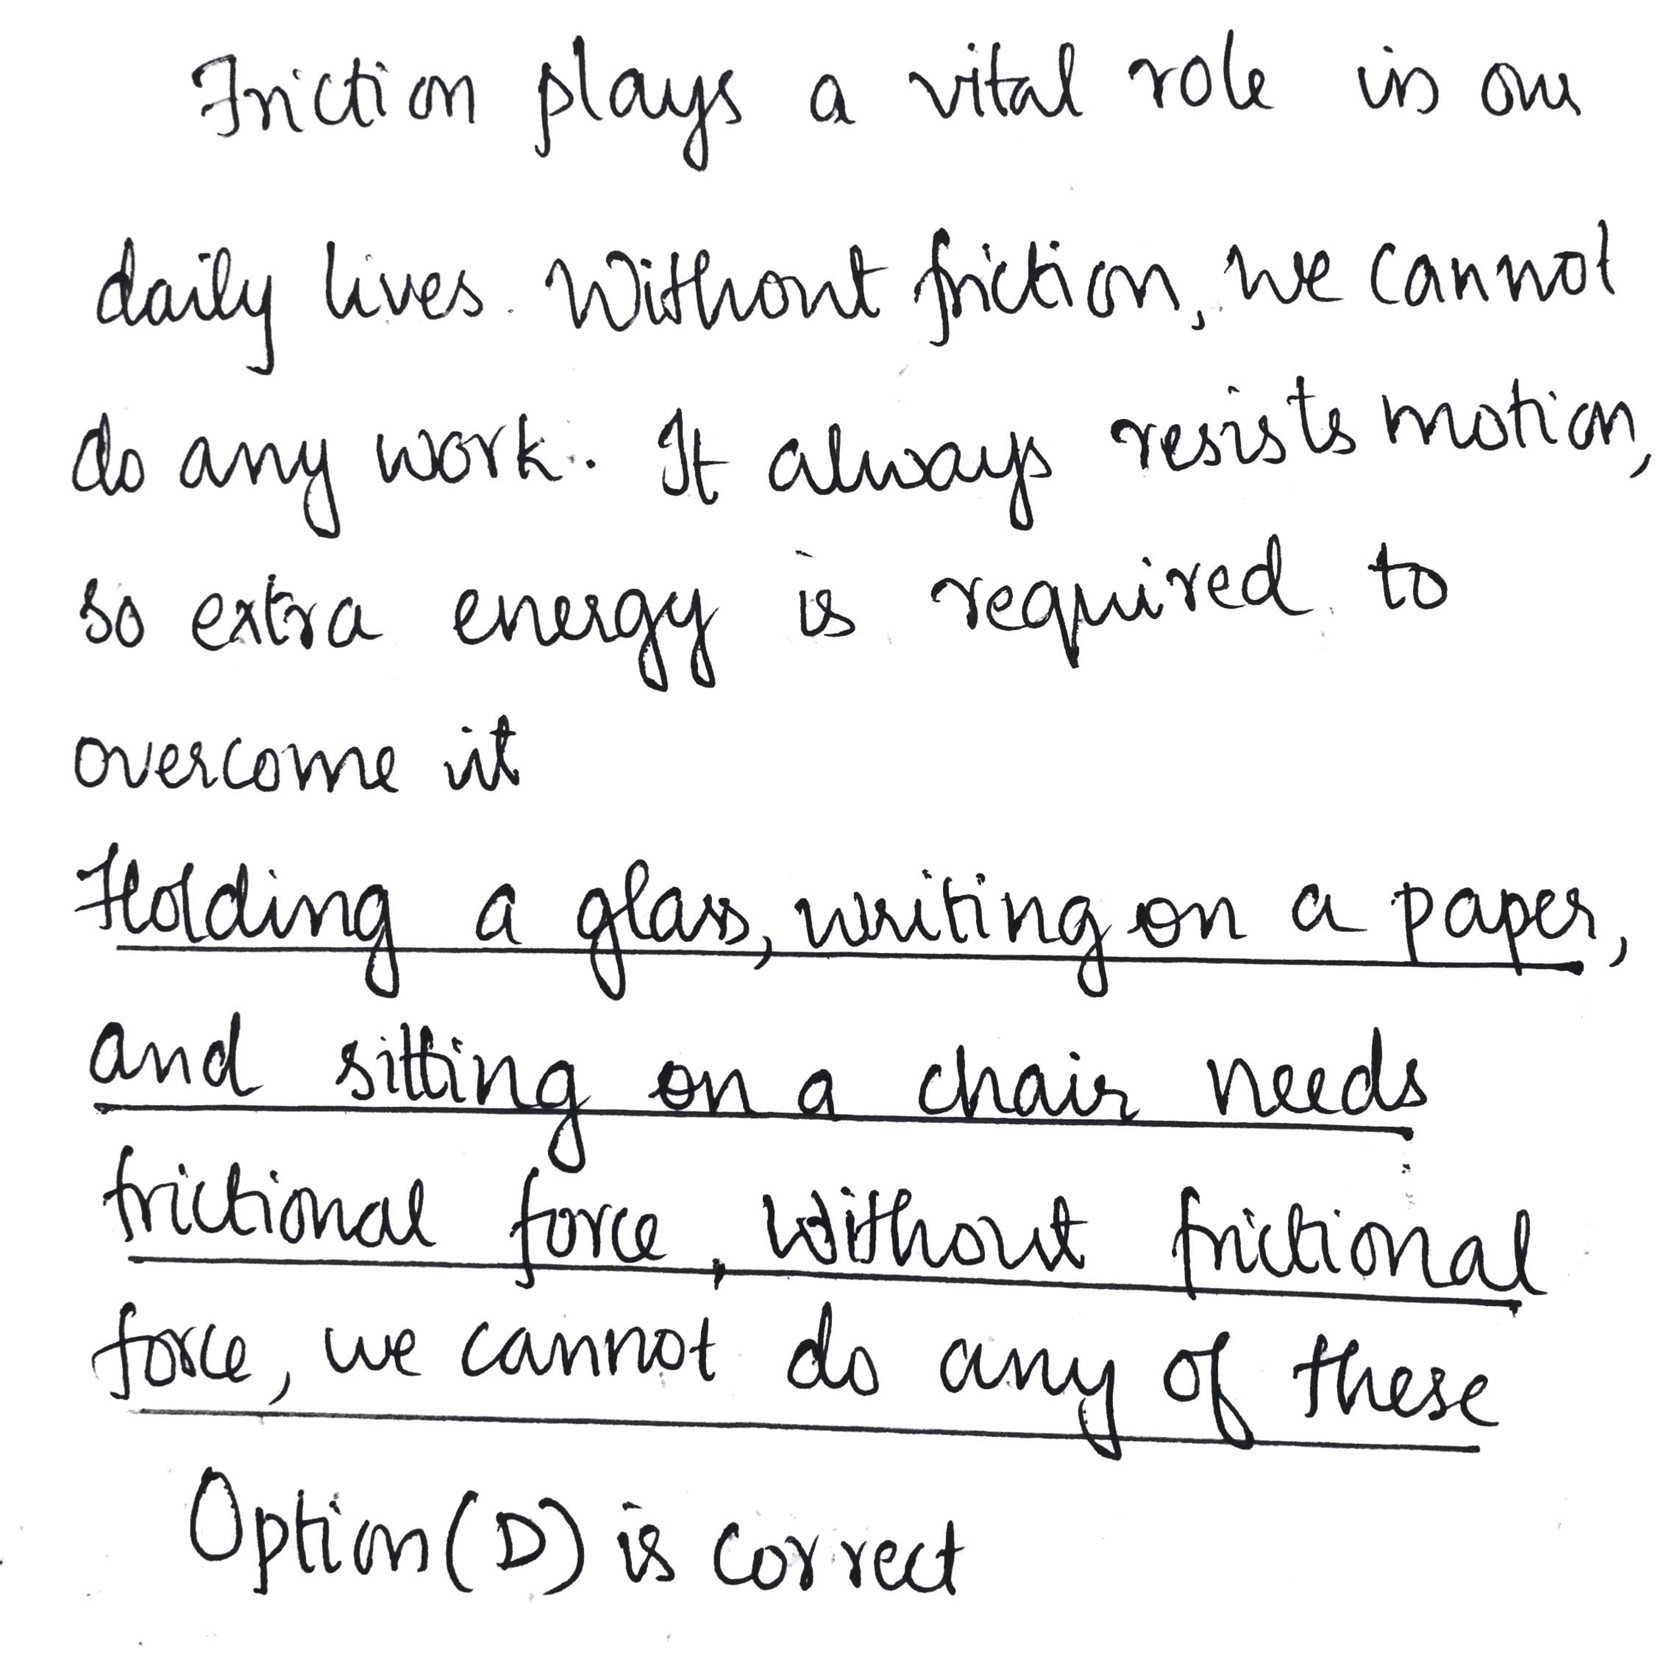 Friction plays a vital role in our
daily lives. Without friction, we cannot
do any work. It always resists motion,
so extra energy is required to
overcome it
Holding a glass, writing on a paper,
and sitting on a chair needs
frictional force, Without frictional
force, we cannot do any of these
Option (D) is correct